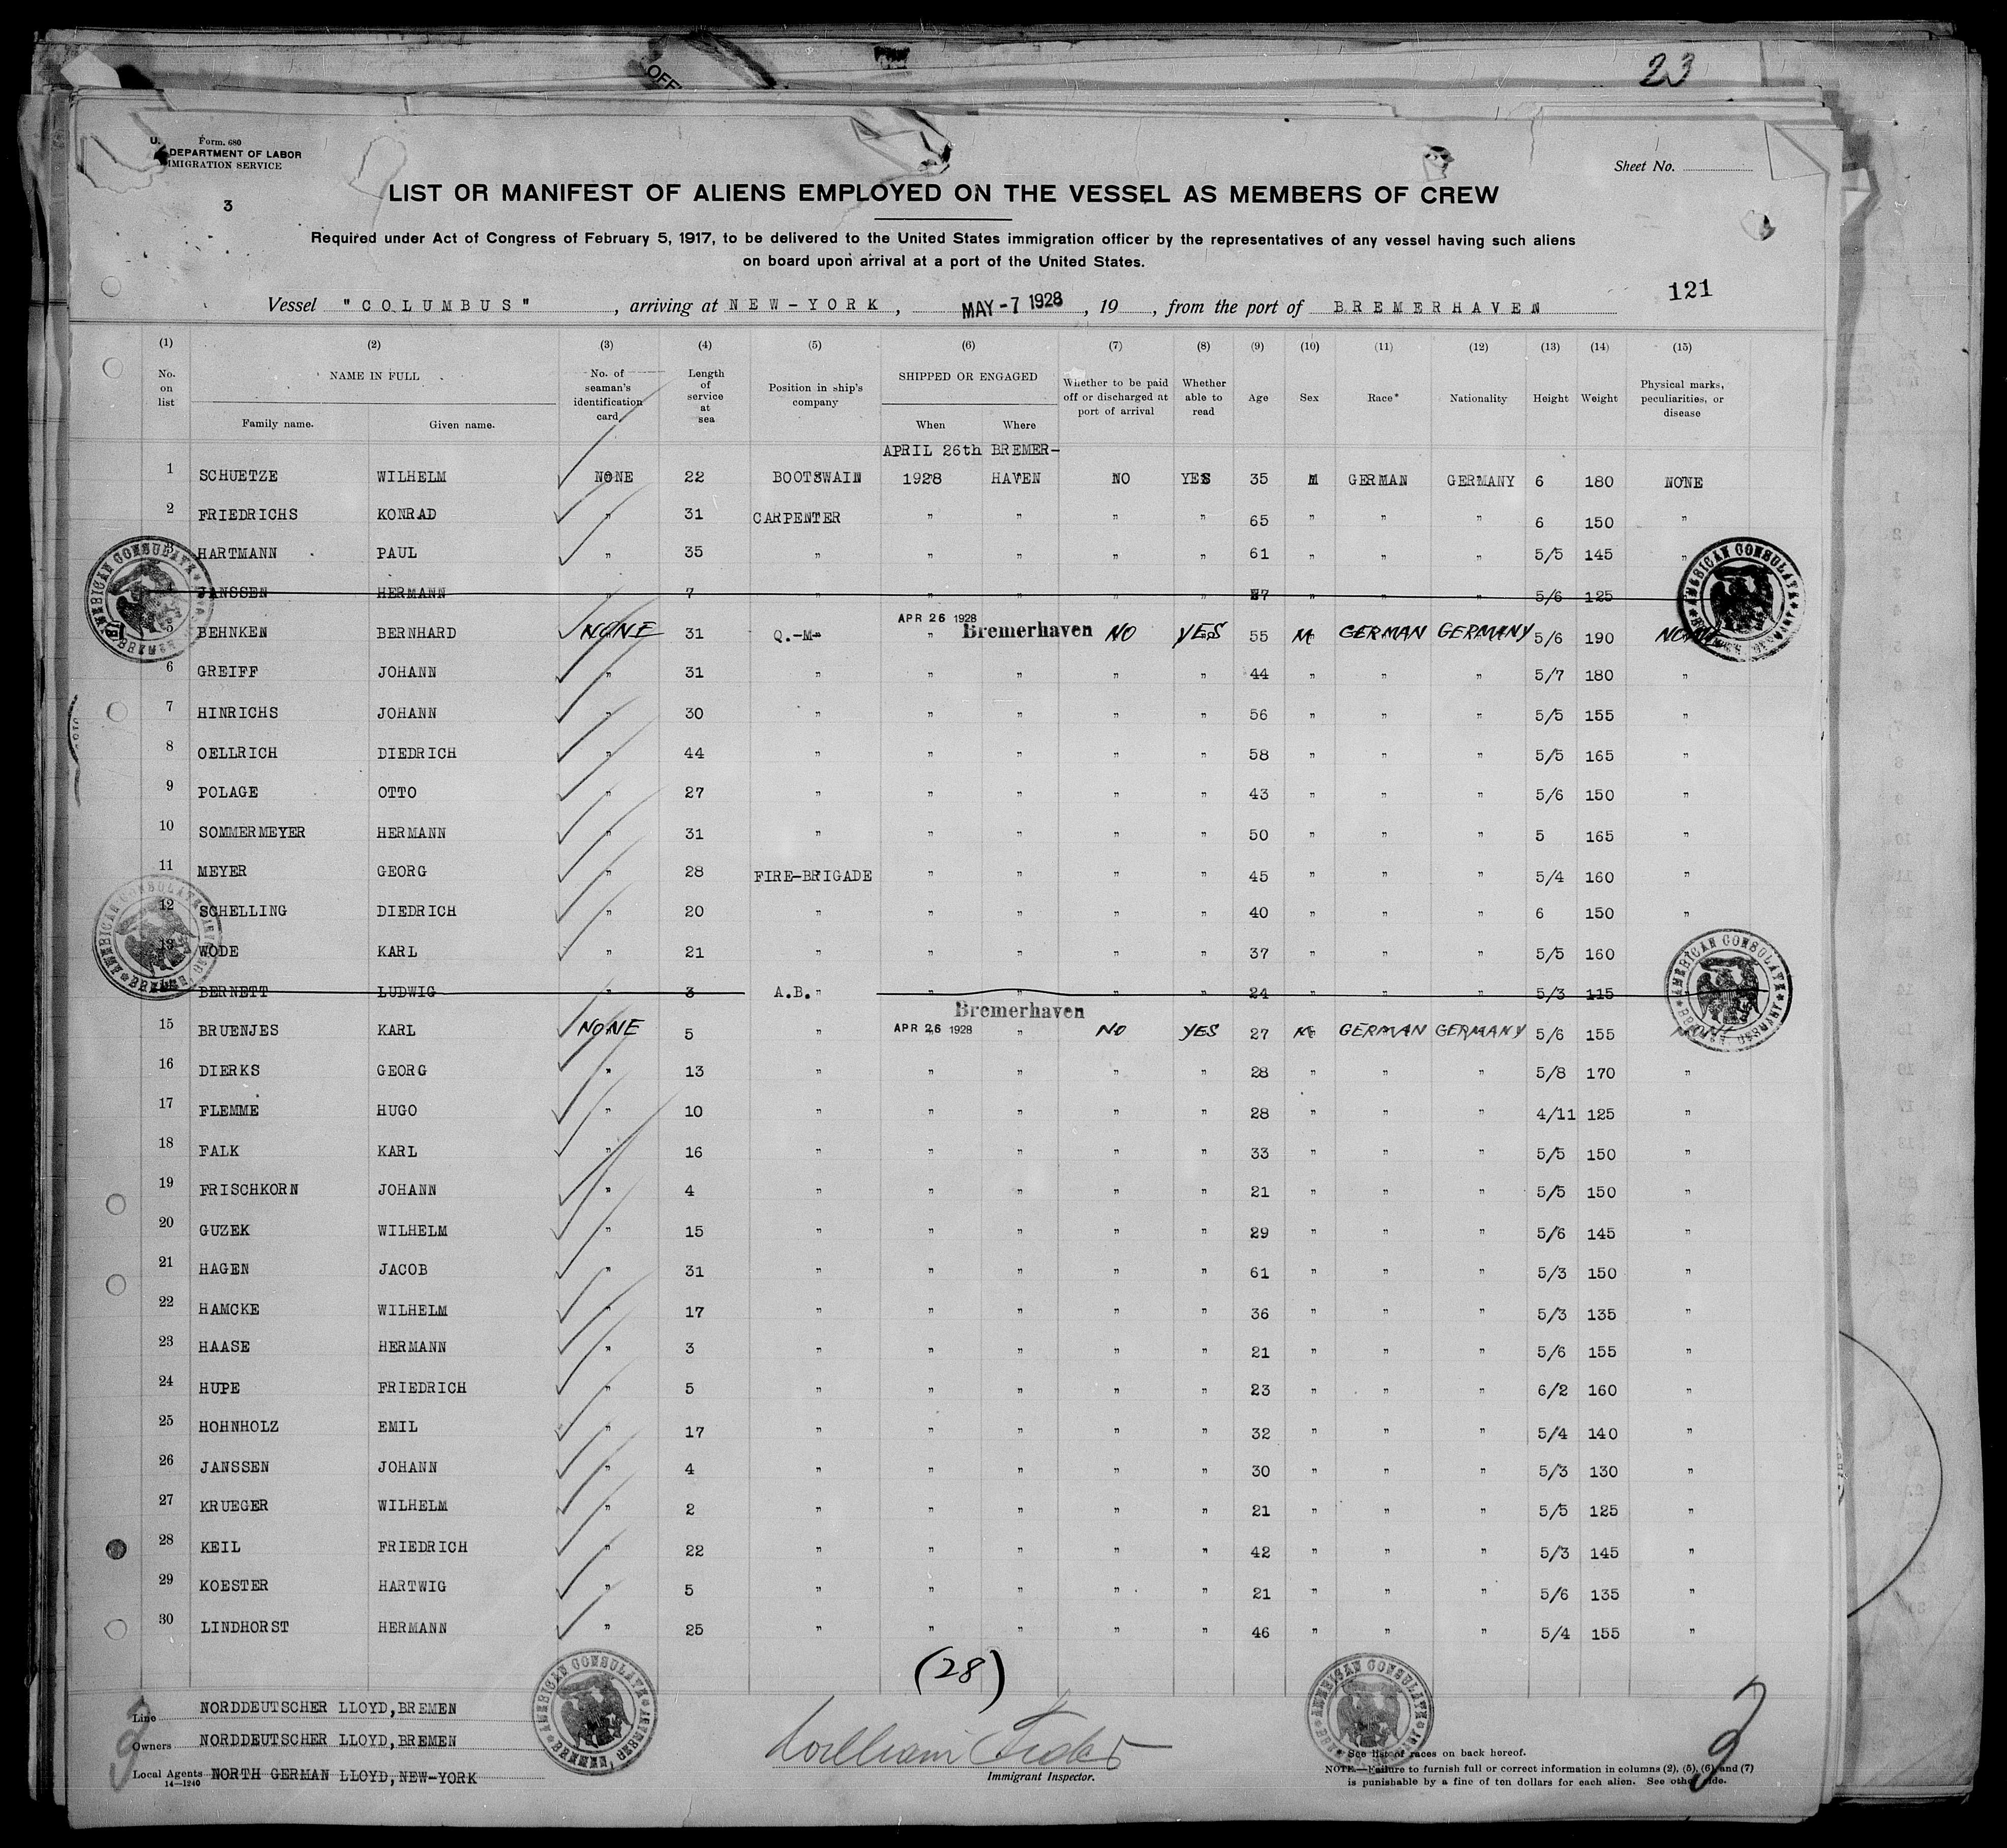 OFF
23
Form. 680
U. DEPARTMENT OF LABOR
IMIGRATION SERVICE
Sheet No.
3
LIST OR MANIFEST OF ALIENS EMPLOYED ON THE VESSEL AS MEMBERS OF CREW
Required under Act of Congress of February 5, 1917, to be delivered to the United States immigration officer by the representatives of any vessel having such aliens
on board upon arrival at a port of the United States.
121
Vessel "COLUMBUS", arriving at NEW-YORK, MAY -7 1928, 19 , from the port of BREMERHAVEN
(1) (2) (3) (4) (5) (6) (7) (8) (9) (10) (11) (12) (13) (14) (15)
No. on list NAME IN FULL Family name. Given name. No. of seaman's identification card Length of service at sea Position in ship's company SHIPPED OR ENGAGED When Where Whether to be paid off or discharged at port of arrival Whether able to read Age Sex Race* Nationality Height Weight Physical marks, peculiarities, or disease
APRIL 26th BREMER-
1 SCHUETZE WILHELM NONE 22 BOOTSWAIN 1928 HAVEN NO YES 35 M GERMAN GERMANY 6 180 NONE
2 FRIEDRICHS KONRAD " 31 CARPENTER " " " " 65 " " " 6 150 "
3 HARTMANN PAUL " 35 " " " " " 61 " " " 5/5 145 "
4 JANSSEN HERMANN " 7 " " " " " 27 " " " 5/6 125
APR 26 1928
5 BEHNKEN BERNHARD NONE 31 Q.-M- " Bremerhaven NO YES 55 M GERMAN GERMANY 5/6 190 NONE
6 GREIFF JOHANN " 31 " " " " " 44 " " " 5/7 180 "
7 HINRICHS JOHANN " 30 " " " " " 56 " " " 5/5 155 "
8 OELLRICH DIEDRICH " 44 " " " " " 58 " " " 5/5 165 "
9 POLAGE OTTO " 27 " " " " " 43 " " " 5/6 150 "
10 SOMMERMEYER HERMANN " 31 " " " " " 50 " " " 5 165 "
11 MEYER GEORG " 28 FIRE-BRIGADE " " " " 45 " " " 5/4 160 "
12 SCHELLING DIEDRICH " 20 " " " " " 40 " " " 6 150 "
13 WODE KARL " 21 " " " " " 37 " " " 5/5 160
14 BERNETT LUDWIG " 3 A.B. " " " " " 24 " " " 5/3 115
Bremerhaven
15 BRUENJES KARL NONE 5 " APR 26 1928 " NO YES 27 M GERMAN GERMANY 5/6 155 NONE
16 DIERKS GEORG " 13 " " " " " 28 " " " 5/8 170 "
17 FLEMME HUGO " 10 " " " " " 28 " " " 4/11 125 "
18 FALK KARL " 16 " " " " " 33 " " " 5/5 150 "
19 FRISCHKORN JOHANN " 4 " " " " " 21 " " " 5/5 150 "
20 GUZEK WILHELM " 15 " " " " " 29 " " " 5/6 145 "
21 HAGEN JACOB " 31 " " " " " 61 " " " 5/3 150 "
22 HAMCKE WILHELM " 17 " " " " " 36 " " " 5/3 135 "
23 HAASE HERMANN " 3 " " " " " 21 " " " 5/6 155 "
24 HUPE FRIEDRICH " 5 " " " " " 23 " " " 6/2 160 "
25 HOHNHOLZ EMIL " 17 " " " " " 32 " " " 5/4 140 "
26 JANSSEN JOHANN " 4 " " " " " 30 " " " 5/3 130 "
27 KRUEGER WILHELM " 2 " " " " " 21 " " " 5/5 125 "
28 KEIL FRIEDRICH " 22 " " " " " 42 " " " 5/3 145 "
29 KOESTER HARTWIG " 5 " " " " " 21 " " " 5/6 135 "
30 LINDHORST HERMANN " 25 " " " " " 46 " " " 5/4 155 "
(28)
AMERICAN CONSULATE
Line NORDDEUTSCHER LLOYD,BREMEN
Owners NORDDEUTSCHER LLOYD,BREMEN
Local Agents NORTH GERMAN LLOYD,NEW-YORK
14—1240
William
Immigrant Inspector.
* See list of races on back hereof.
NOTE.—Failure to furnish full or correct information in columns (2), (5), (6) and (7)
is punishable by a fine of ten dollars for each alien. See other side.